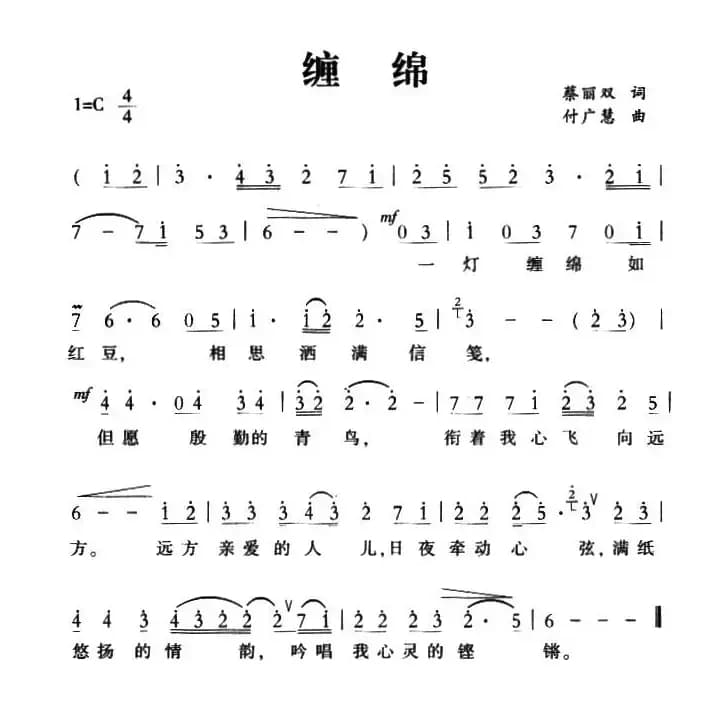 缠 绵
1=C 4/4
蔡丽双 词
付广慧 曲
( i̇ 2̇ | 3̇ · 4̇ 3̇ 2̇ 7 i̇ | 2̇ 5 5 2̇ 3̇ · 2̇ i̇ |
7 - 7 i̇ 5 3 | 6 - - ) mf 0 3 | i 0 3 7 0 i |
一 灯 缠 绵 如
7 6 · 6 0 5 | i · i 2 2 · 5 | 2 3 - - ( 2 3 ) |
红 豆, 相 思 洒 满 信 笺,
mf 4 4 · 0 4 3 4 | 3 2 2 · 2 - | 7 7 7 i 2 3 2 5 |
但 愿 殷 勤 的 青 鸟, 衔 着 我 心 飞 向 远
6 - - i 2 | 3 3 4 3 2 7 i | 2 2 2 5 · 2 3 2 2 |
方。 远 方 亲 爱 的 人 儿, 日 夜 牵 动 心 弦, 满 纸
4 4 3 4 3 2 2 2 7 i | 2 2 2 3 2 · 5 | 6 - - - ‖
悠 扬 的 情 韵, 吟 唱 我 心 灵 的 铿 锵。